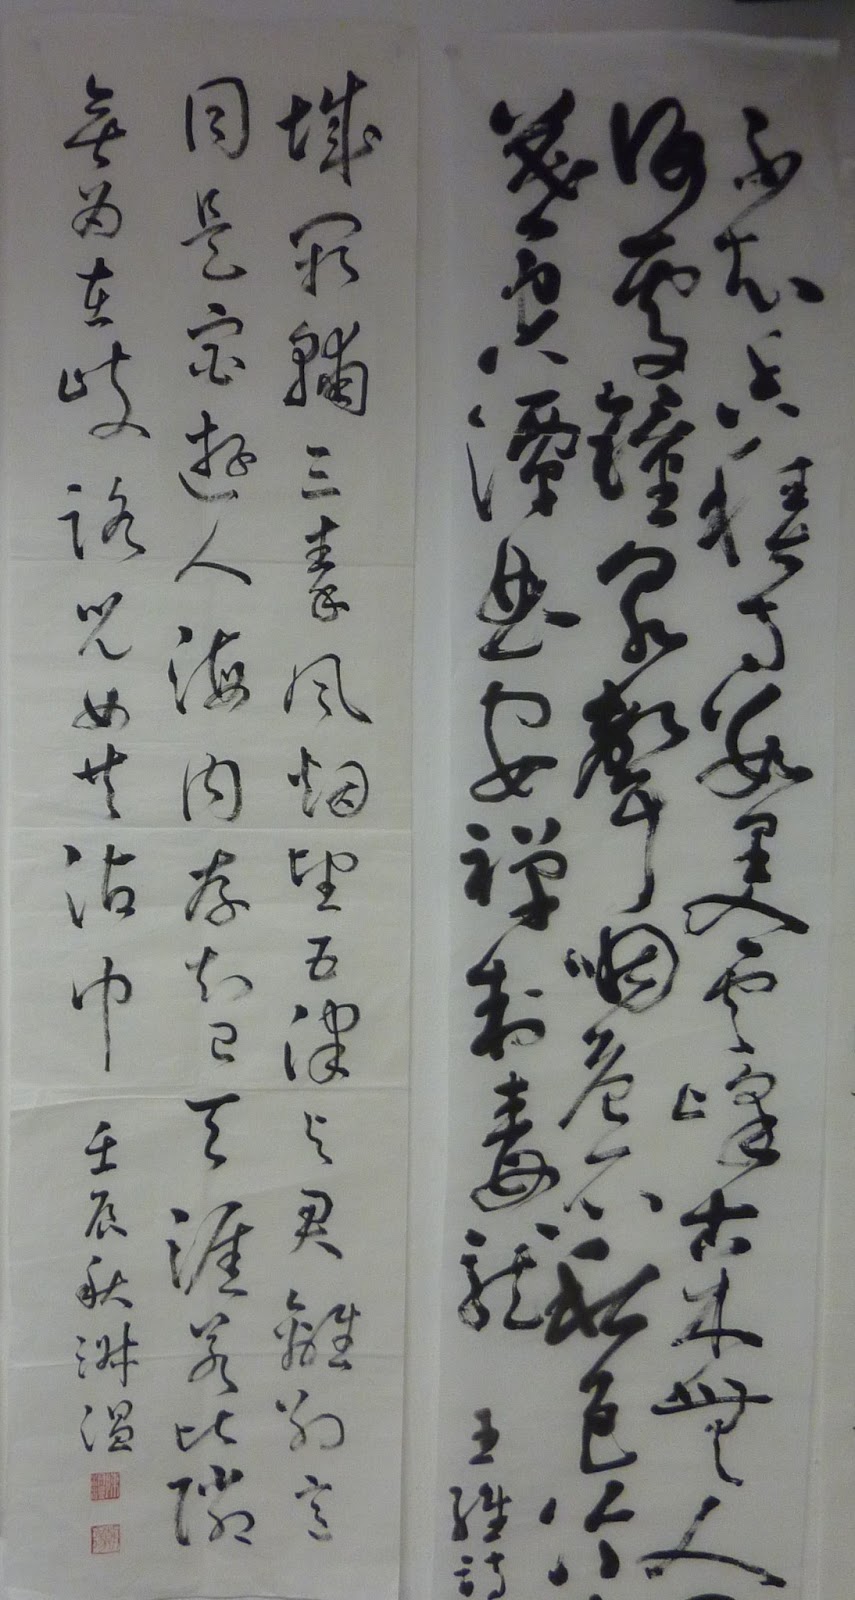 不知香積寺數里入雲峰古木無人
何處鐘泉聲咽危石色冷
暮空潭曲安禪制毒龍
王維詩
城闕輔三秦風烟望五津與君離別意
同是宦遊人海內存知己天涯若比隣
無為在歧路兒女共沾巾
壬辰秋